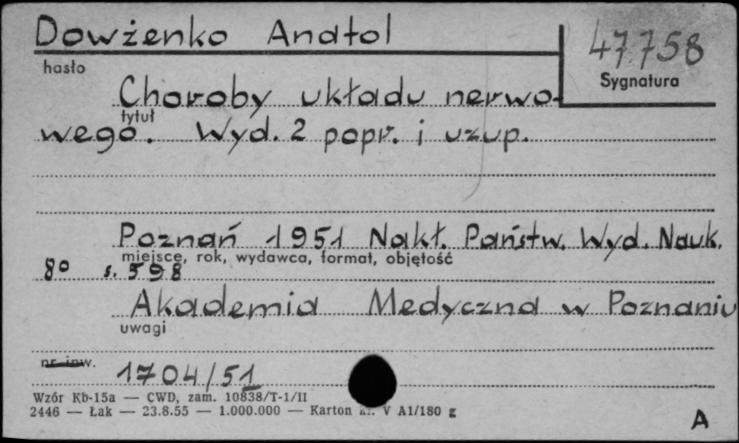 Dowżenko Anatol
47758
hasło
Sygnatura
Choroby układu nerwo-
tytuł
wego. Wyd. 2 popr. i uzup.
Poznań 1951 Nakł. Państw. Wyd. Nauk.
miejsce, rok, wydawca, format, objętość
8° s. 598
Akademia Medyczna w Poznaniu
uwagi
nr inw.
1704/51
Wzór Kb-15a — CWD, zam. 10838/T-1/II
2446 — Łak — 23.8.55 — 1.000.000 — Karton V A1/180 g
A